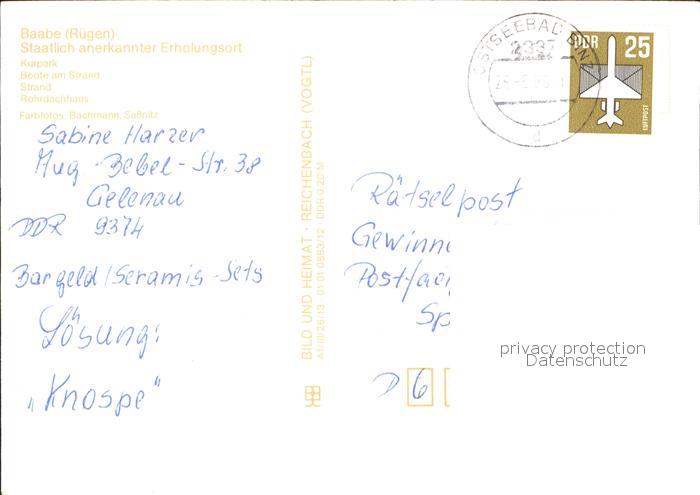 Baabe (Rügen)
Staatlich anerkannter Erholungsort
Kurpark
Boote am Strand
Strand
Rohrdachhaus
Farbfotos: Bachmann, Saßnitz
Sabine Harzer
Aug.-Bebel-Str. 38
Gelenau
DDR 9374
Bargeld/Seramis-Sets
Lösung:
"Knospe"
BILD UND HEIMAT · REICHENBACH (VOGTL)
A1/III/26/13 · 01 01 0883/12 · DDR 0,20 M
OSTSEEBAD BINZ
2337
d
DDR 25
LUFTPOST
Rätselpost
Gewinn
Postfac
Sp
D 6
privacy protection
Datenschutz